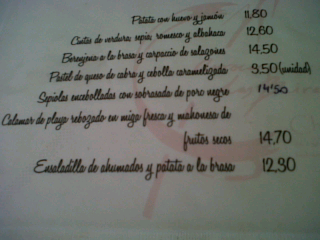 Patata con huevo y jamón 11,80
Cintas de verdura, sepia, romesco y albahaca 12,60
Berenjena a la brasa y carpaccio de salazones 14,50
Pastel de queso de cabra y cebolla caramelizada 3,50 (unidad)
Sepiolas encebolladas con sobrasada de porc negre 14'50
Calamar de playa rebozado en miga fresca y mahonesa de
frutos secos 14,70
Ensaladilla de ahumados y patata a la brasa 12,30